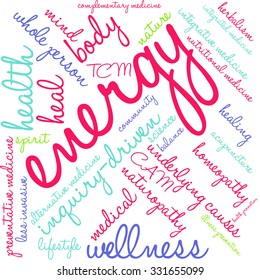 complementary medicine
mind
body
whole person
health
heal
TCM
nature
energy
herbalism
integrative medicine
nutritional medicine
healing
acupuncture
community
conscious
science
balance
spirit
preventative medicine
less invasive
alternative medicine
inquiry driven
lifestyle
medical
CAM
naturopathy
underlying causes
homeopathy
wellness
www.shutterstock.com · 331655099